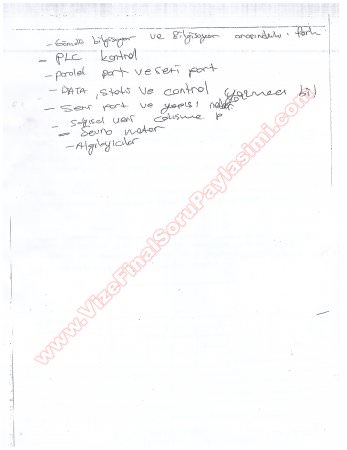 - Gömülü bilgisayar ve Bilgisayar arasındaki fark
- PLC kontrol
- paralel port ve seri port
- DATA, status ve control (yazmacı bil)
- Seri port ve yapısı nedir
- Sayısal veri çalışma
- Servo motor
- Algılayıcılar
www.VizeFinalSoruPaylasimi.com